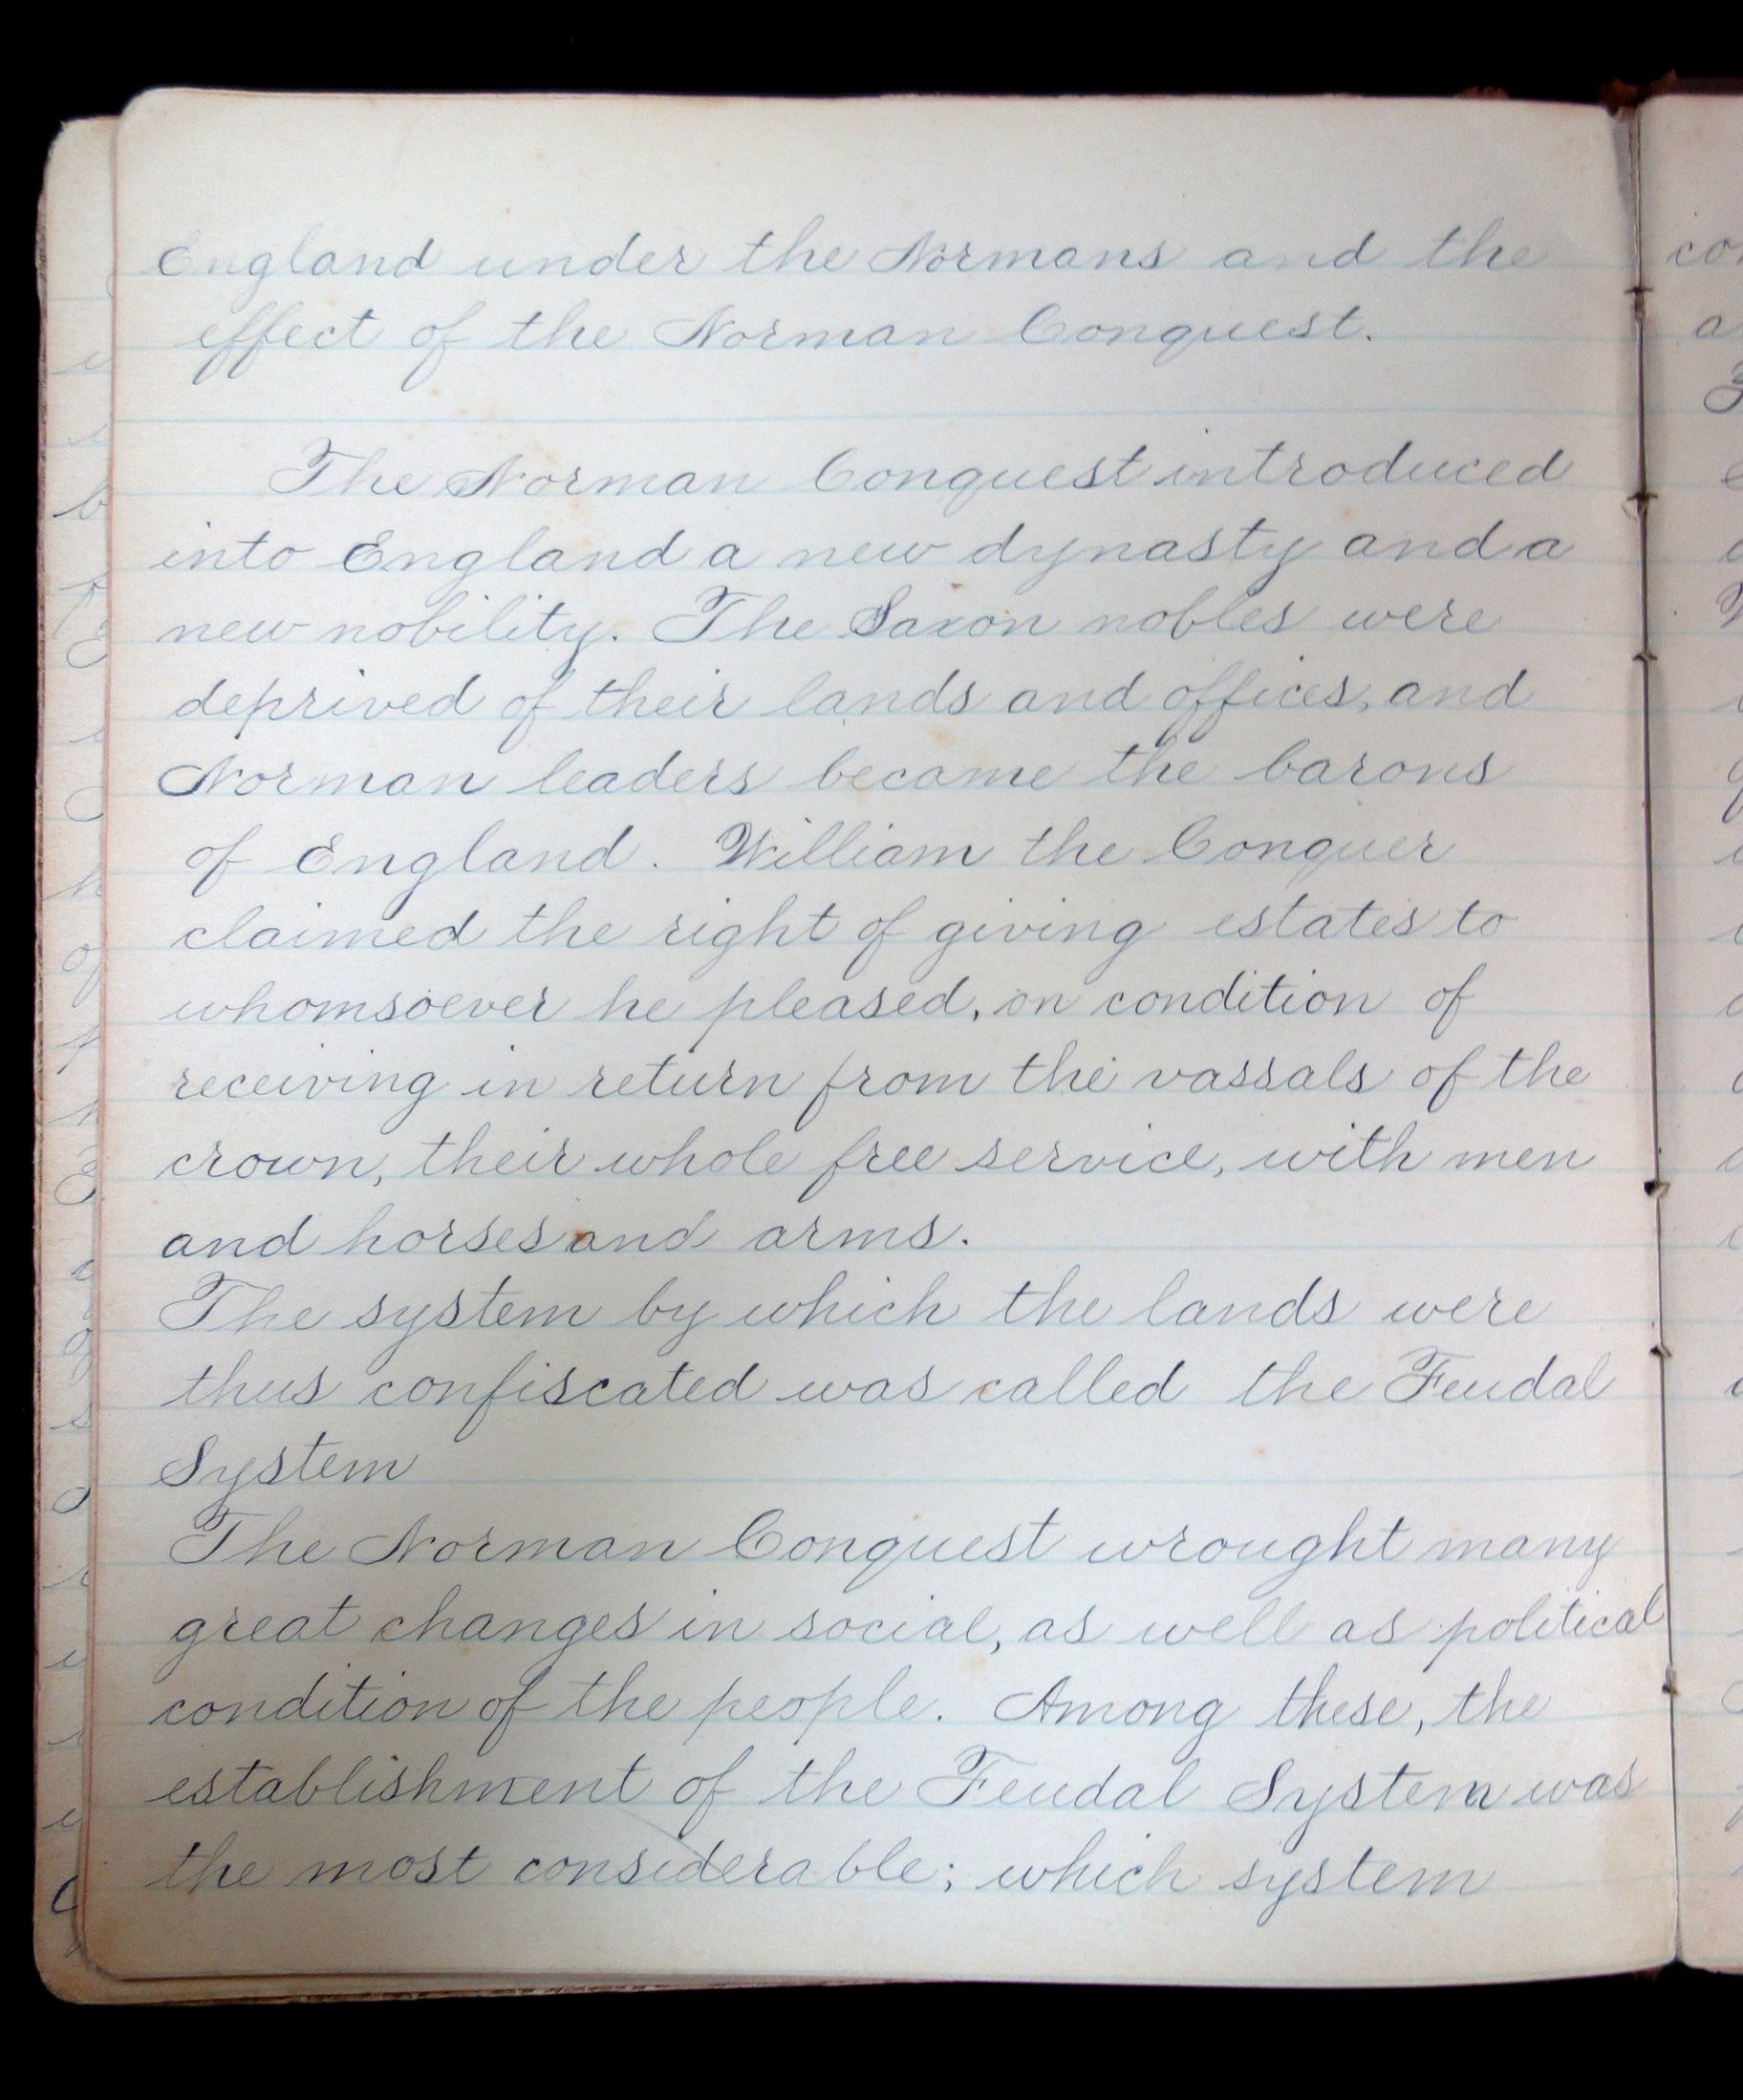 England under the Normans and the
effect of the Norman Conquest.
The Norman Conquest introduced
into England a new dynasty and a
new nobility. The Saxon nobles were
deprived of their lands and offices, and
Norman leaders became the barons
of England. William the Conquer
claimed the right of giving estates to
whomsoever he pleased, on condition of
receiving in return from the vassals of the
crown, their whole free service, with men
and horses and arms.
The system by which the lands were
thus confiscated was called the Feudal
System
The Norman Conquest wrought many
great changes in social, as well as political
condition of the people. Among these, the
establishment of the Feudal System was
the most considerable; which system